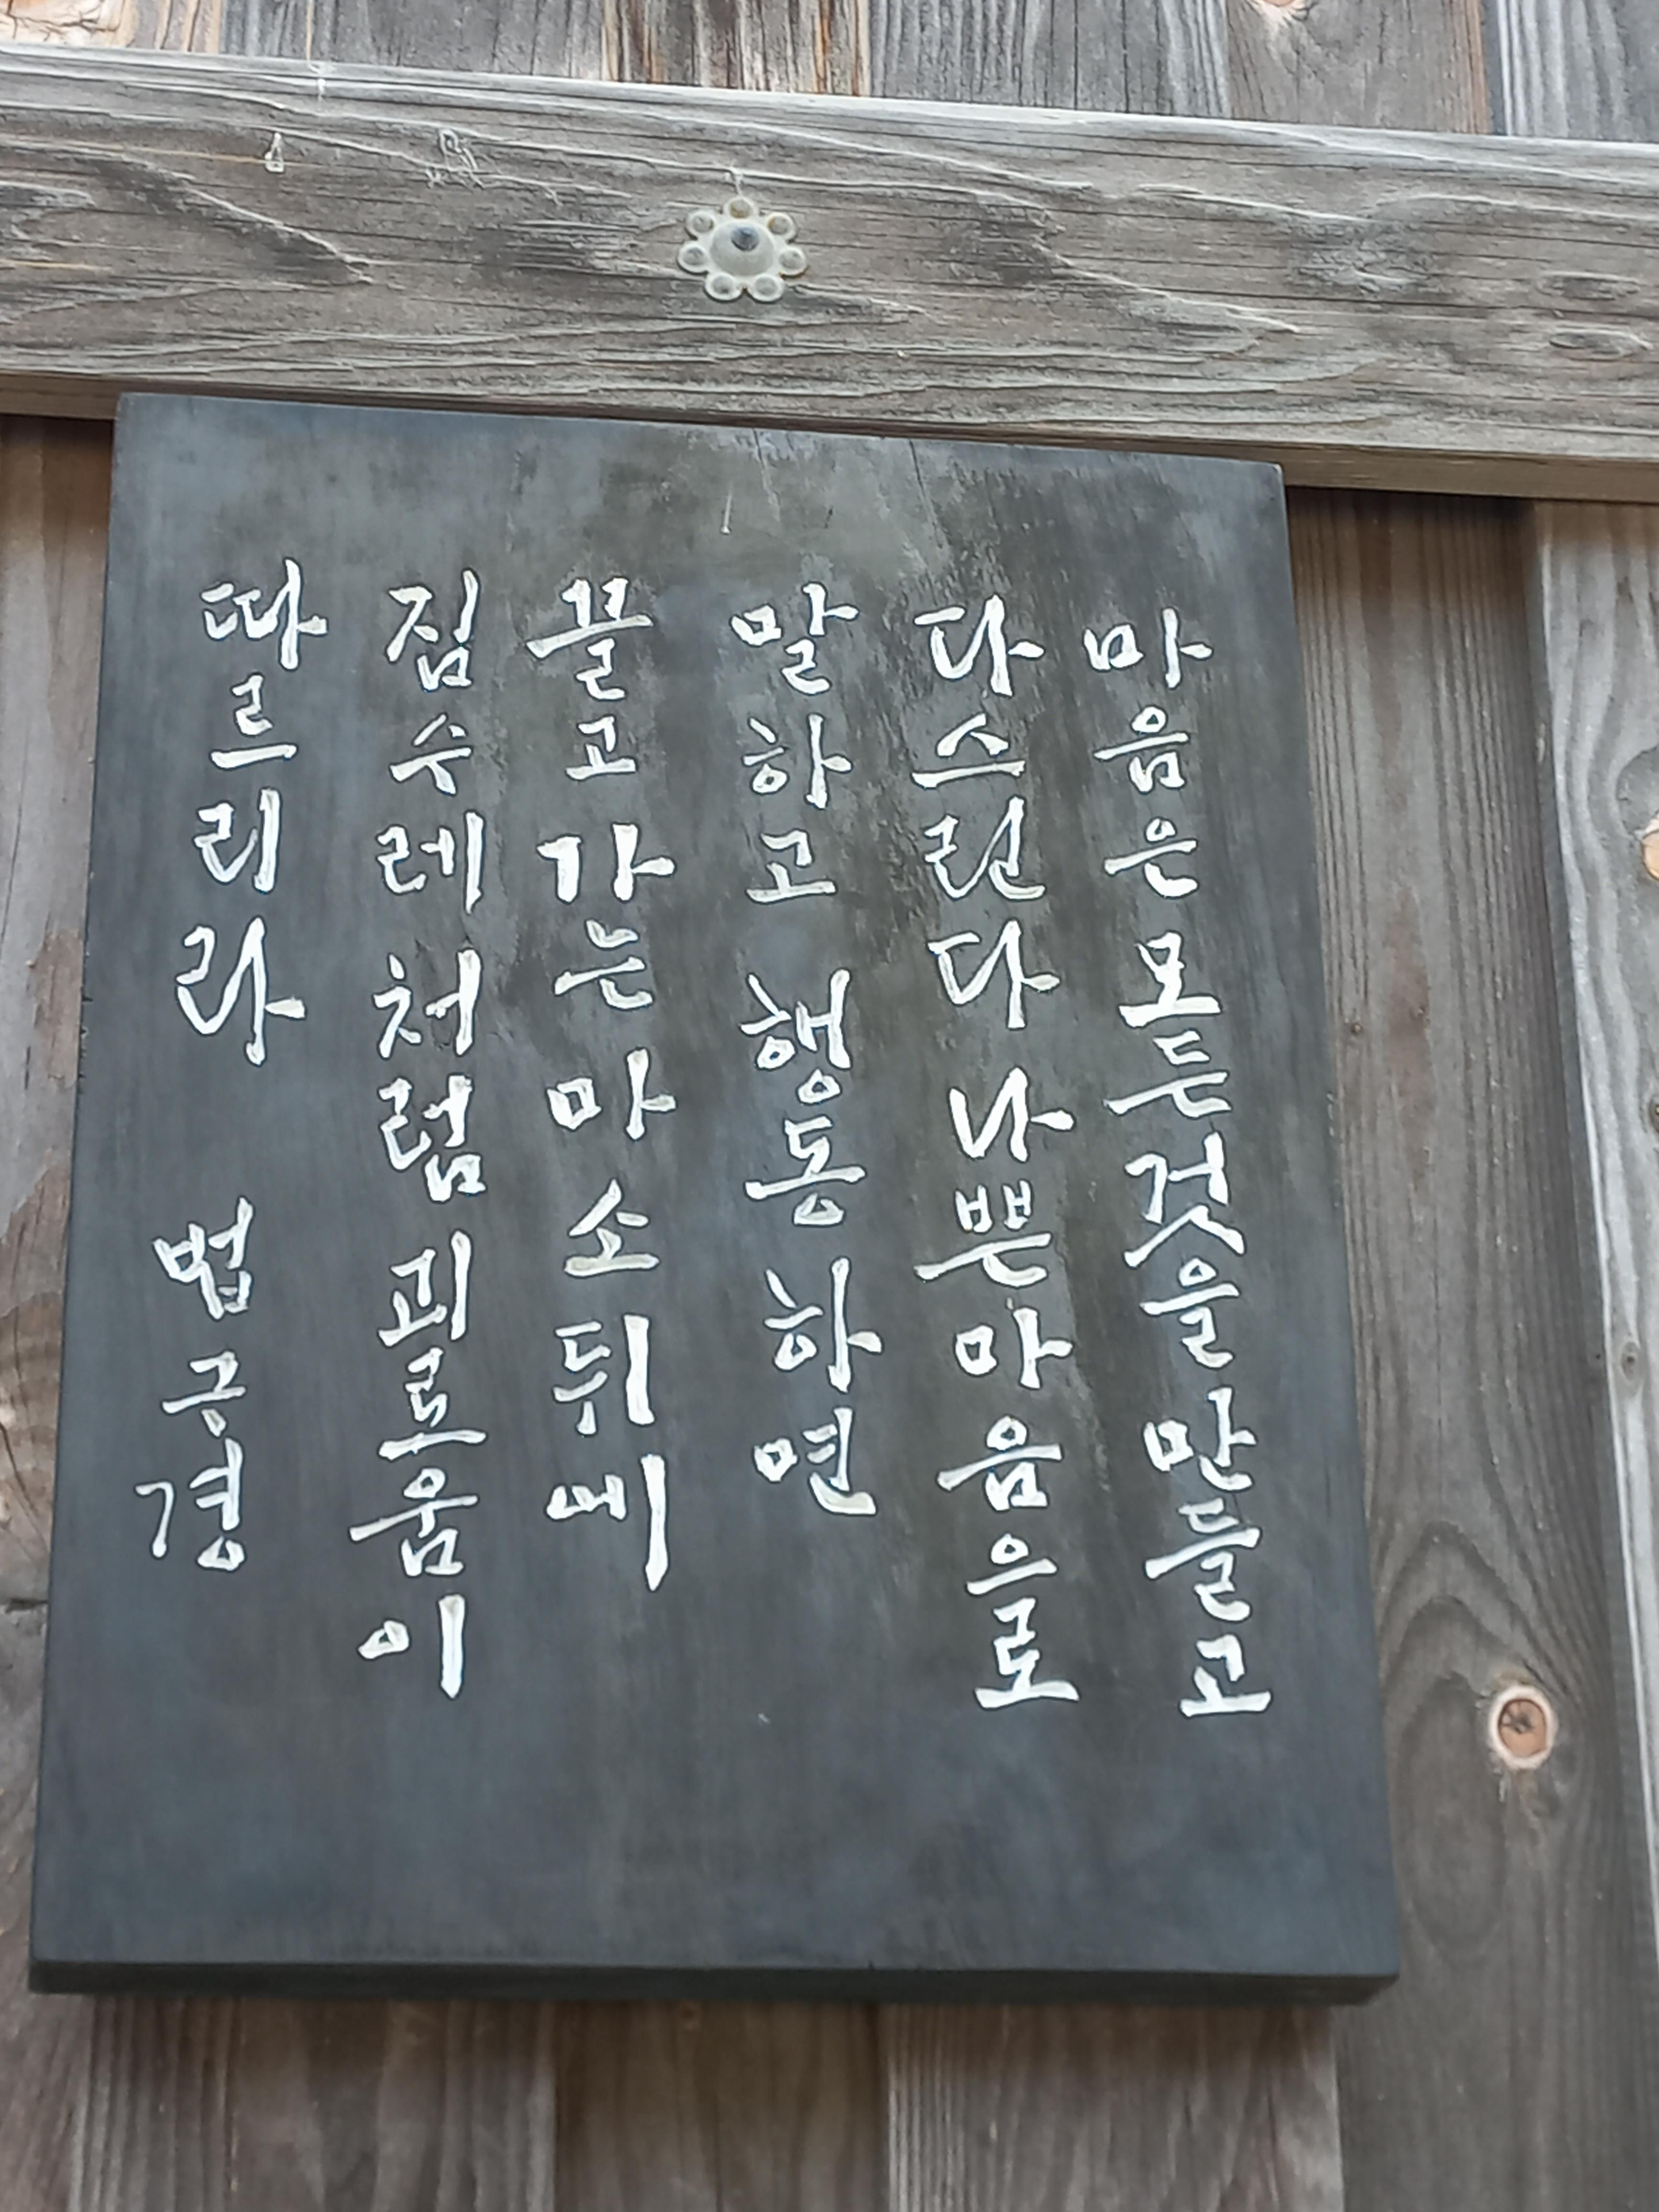 마음은 모든것을 만들고
다스린다 나쁜마음으로
말하고 행동하면
끌고 가는 마소뒤에
짐수레처럼 괴로움이
따르리라 법구경